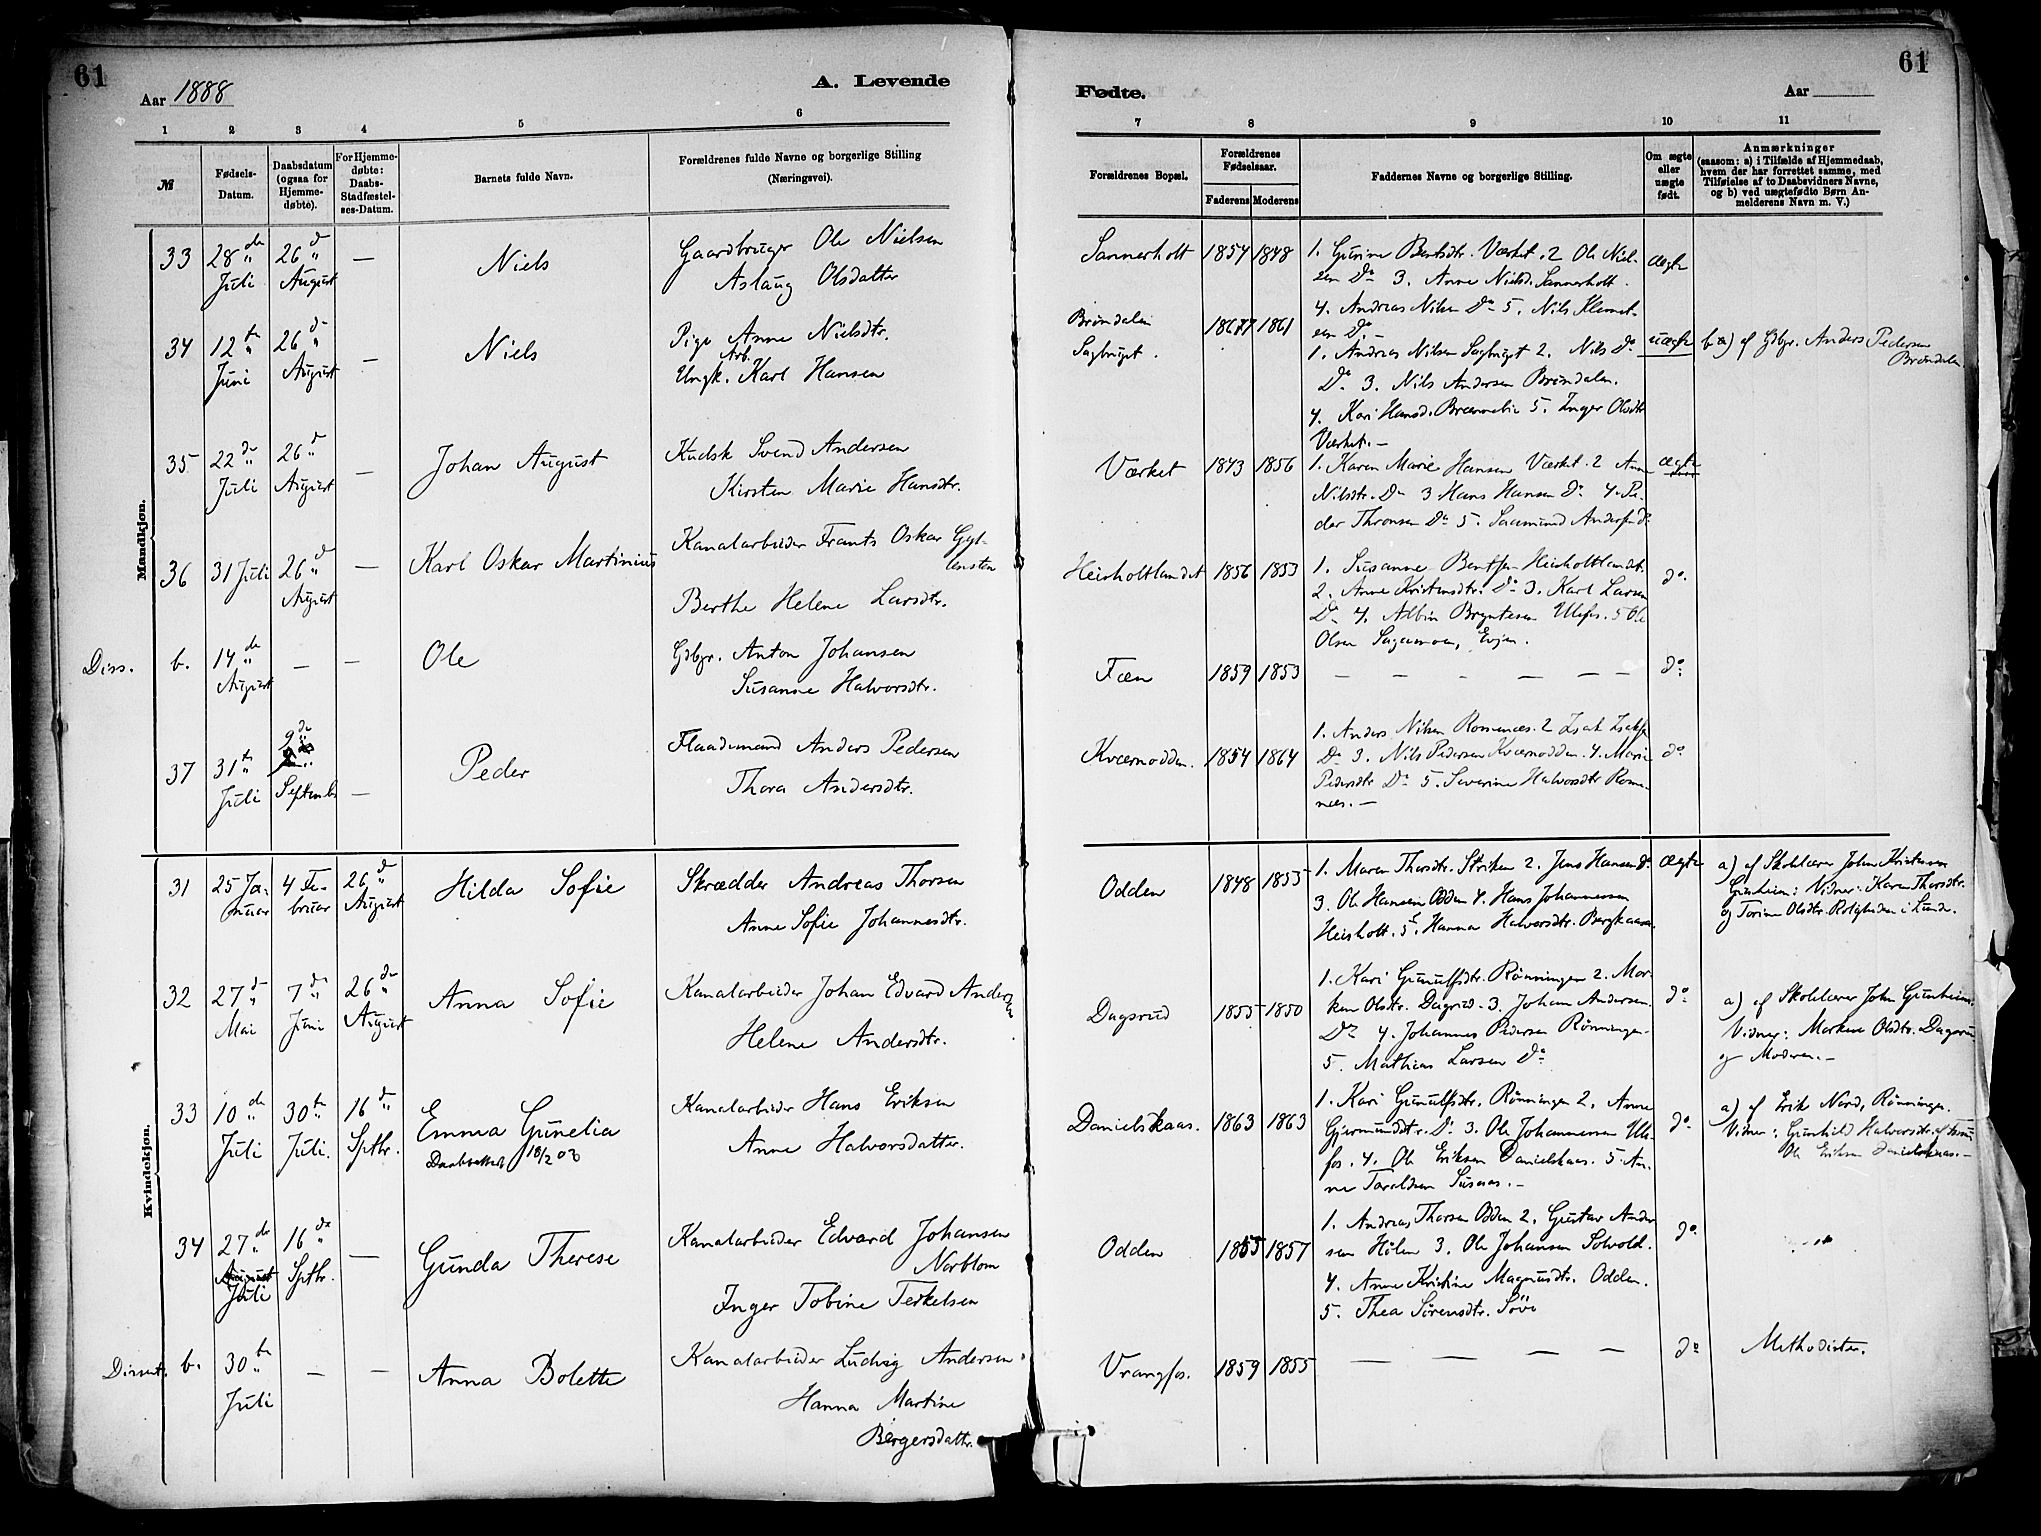 61
Aar 1888
A. Levende
1 2 3 4 5 6
№
Fødsels-Datum.
Daabsdatum (ogsaa for Hjemme-døbte).
For Hjemme-døbte: Daabs-Stadfæstel-ses-Datum.
Barnets fulde Navn.
Forældrenes fulde Navne og borgerlige Stilling
(Næringsvei).
Mandkjøn.
33 28de Juli 26de August — Niels
Gaardbruger Ole Nielsen
Aslaug Olsdatter
34 12te Juni 26de August — Niels
Pige Anne Nielsdtr.
Arb.
Ungk. Karl Hansen
35 22de Juli 26de August — Johan August
Kudsk Svend Andersen
Kirsten Marie Hansdtr.
36 31 Juli 26de August — Karl Oskar Martinius
Kanalarbeider Frants Oskar Gyl-
lensten
Berthe Helene Larsdtr.
Diss. b. 14de August — — Ole
Gdbgr. Anton Johansen
Susanne Halvorsdtr.
37 31te Juli 9de Septemb. — Peder
Flaademand Anders Pedersen
Thora Andersdtr.
Kvindekjøn.
31 25 Januar 4 Februar 26de August Hilda Sofie
Skrædder Andreas Thorsen
Anne Sofie Johannesdtr.
32 27de Mai 7de Juni 26de August Anna Sofie
Kanalarbeider Johan Edvard Andersen
Helene Andersdtr.
33 10de Juli 30te Juli. 16de Sptbr. Emma Gunelia
Daabsattest 18/2 08
Kanalarbeider Hans Eriksen
Anne Halvorsdatter.
34 27de August Juli 16de Sptbr. — Gunda Therese
Kanalarbeider Edvard Johansen
Norblom
Inger Tobine Terkelsen
Dissent. b. 30te Juli — — Anna Bolette
Kanalarbeider Ludvig Andersen
Hanna Martine
Bergersdattr.
61
Fødte.
Aar
7 8 9 10 11
Forældrenes Bopæl.
Forældrenes Fødselsaar.
Faderens Moderens
Faddernes Navne og borgerlige Stilling.
Om ægte eller uægte født.
Anmærkninger
(saasom: a) i Tilfælde af Hjemmedaab,
hvem der har forrettet samme, med
Tilføielse af to Daabsvidners Navne,
og b) ved uægtefødte Børn An-
melderens Navn m. V.)
Sannerholt 1854 1848
1. Gurine Bentsdtr. Værket. 2 Ole Niel-
sen Do 3. Anne Nielsd. Sannerholt.
4. Andreas Nilsen Do 5. Nils Klemet-
sen Do. —
ægte
Brøndalen
Sagbruget. 1867 1861
1. Andreas Nilsen Sagbruget 2. Nils Do
Do 3. Nils Andersen Brøndalen.
4. Kari Hansd. Brænnelie 5. Inger Olsdtr
Værket. —
uægte
b) af Gdbgr. Anders Pedersen
Brøndalen.
Værket 1843 1856
1. Karen Marie Hansen Værket. 2 Anne
Nilsdtr. Do 3 Hans Hansen Do 4. Pe-
der Thronsen Do 5. Saamund Andersen Do
ægte
Heisholtlandet 1856 1853
1. Susanne Bentsen Heisholtlandet.
2. Anne Kristensdtr. Do 3. Karl Larsen
Do 4. Albin Bryntesen Ulefos. 5 Ole
Olsen Sagamoen, Evjen.
do
Fæn 1859 1853 — — — — — — do
Kværnodden. 1854 1864
1. Anders Nilsen Romenæs. 2 Isak Isaksen
Do 3. Nils Pedersen Kværnodden. 4. Marie
Pedersdtr Do 5. Severine Halvorsdtr Rome-
næs. —
do
Odden 1848 1855
1. Maren Thorsdtr. Striken 2. Jens Hansen Do
3. Ole Hansen Odden 4. Hans Johannesen
Heisholt. 5. Hanna Halvorsdtr. Bergkaasa.
ægte
a) af Skolelærer John Kristensen
Gunheim: Vidner: Karen Thorsdtr.
og Torine Olsdtr. Roligheden i Lunde.
Dagsrud 1855 1850
1. Kari Gunulfsdtr. Rønningen 2. Mar-
ken Olsdtr. Dagsrud. 3. Johan Andersen
Do 4. Johannes Pedersen Rønningen.
5. Mathias Larsen Do
do
a) af Skolelærer John Gunheim.
Vidner: Marken Olsdtr. Dagsrud
og Moderen. —
Danielskaas. 1863 1863
1. Kari Gunulfsdtr. Rønningen 2. Anne
Gjermundsdtr. Do 3. Ole Johannesen Ule-
fos. 4. Ole Eriksen Danielskaas. 5. An-
ne Taraldsen Susaas. —
do
a) af Erik Nord, Rønningen.
Vidner: Gunhild Halvorsdtr.
Ole Eriksen Danielskaas. —
Odden 1855 1857
1. Andreas Thorsen Odden 2. Gustav Ander
sen Holen 3. Ole Johansen Solvold.
4. Anne Kristine Magnusdtr. Odden.
5. Thea Sørensdtr. Søve
do
Vrangfos. 1859 1855 — — — — do
Methodister.